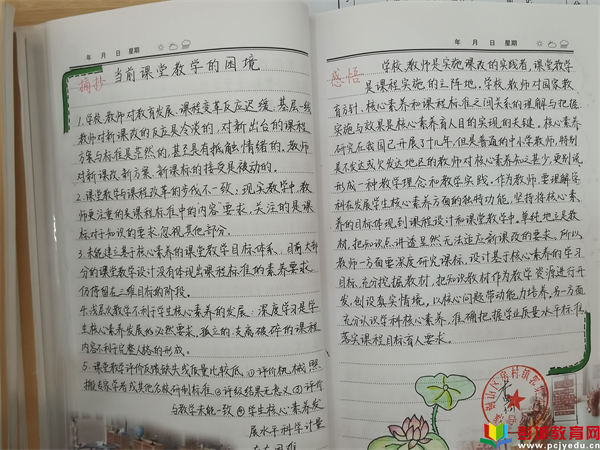 年 月 日 星期
摘抄
当前课堂教学的困境
1.学校、教师对教育发展、课程变革反应迟缓、基层一线
教师对新课改的反应是冷淡的,对新出台的课程
方案与标准是茫然的,甚至具有抵触情绪的。教师
对新课改、新方案、新课标的接受是被动的。
2.课堂教学与课程改革的步伐不一致:现实教学中,教
师更注重的是课程标准中的内容要求,关注的是课
标对于知识的要求,忽视其他部分。
3.未能建立基于核心素养的课堂教学目标体系、目前大部
分的课堂教学设计没有体现出课程标准的素养要求,
仍停留在三维目标的阶段。
4.浅层次教学不利于学生核心素养的发展:深度学习是学
生核心素养发展的必然要求,孤立的、支离破碎的课程
内容不利于完整人格的形成。
5.课堂学评价反馈缺失或质量比较低:①评价机械,照
搬专家学者或其他名校研制标准②评级结果无意义③评价
与教学未能一致④学生核心素养发
展水平科学计量
年 月 日 星期
感悟
学校、教师是实施课改的实践者,课堂教学
是课程实施的主阵地,学校、教师对国家教
育方针、核心素养和课程标准之间关系的理解与把握
实施与效果是核心素养育人目的实现的关键。核心素养
研究在我国已开展了十几年,但是普通的中小学教师,特别
是不发达或欠发达地区的教师对核心素养知之甚少,更别说
形成一种教学理念和教学实践。作为教师,要理解学
科在发展学生核心素养方面的独特功能,坚持将核心素
养的目标体现到课程设计和课堂教学中。单纯地立足教
材,把知识点讲透显然无法适应新课改的要求。所以,
教师一方面要深度研究课标,设计基于核心素养的学习
目标,充分挖掘教材,把知识教材作为教学资源进行开
发,创设真实情境,以核心问题带动能力培养,另一方面
充分认识学科核心素养,准确把握学业质量水平标准,
落实课程目标育人要求。
教育网
www.pcjyedu.cn